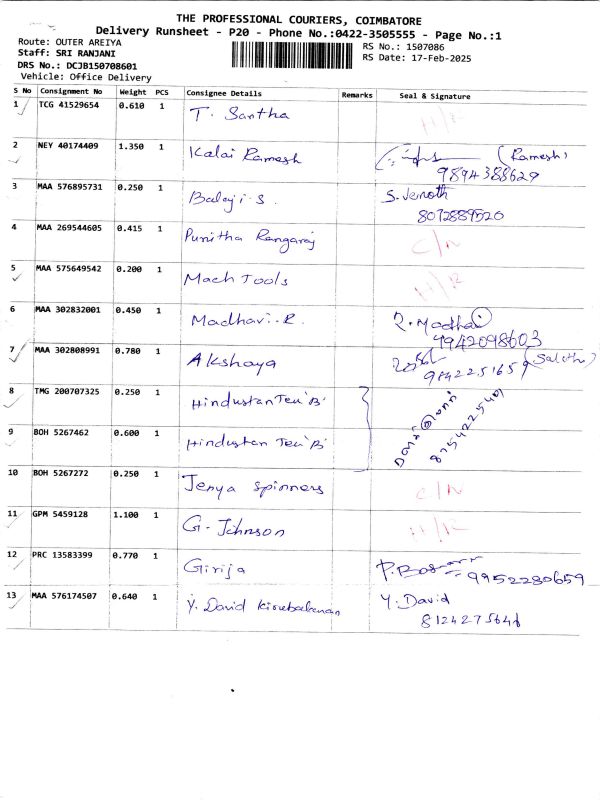 THE PROFESSIONAL COURIERS, COIMBATORE
Delivery Runsheet - P20 - Phone No.:0422-3505555 - Page No.:1
Route: OUTER AREIYA
RS No.: 1507086
Staff: SRI RANJANI
RS Date: 17-Feb-2025
DRS No.: DCJB150708601
Vehicle: Office Delivery
S No Consignment No Weight PCS Consignee Details Remarks Seal & Signature
1 TCG 41529654 0.610 1 T. Santha
2 NEY 40174409 1.350 1 Kalai Ramesh (Ramesh)
9894388629
3 MAA 576895731 0.250 1 Balaji S. S.
8072889520
4 MAA 269544605 0.415 1 Punitha Rangaraj C/N
5 MAA 575649542 0.200 1 Mach Tools
6 MAA 302832001 0.450 1 Madhavi. R. R. Madhai
9942098603
7 MAA 302808991 0.780 1 Akshaya
8 TMG 200707325 0.250 1 Hindustan Tea 'B'
9 BOH 5267462 0.600 1 Hindustan Tea 'B'
8754422540
10 BOH 5267272 0.250 1 Jenya Spinners C/N
11 GPM 5459128 1.100 1 G. Johnson
12 PRC 13583399 0.770 1 Girija 9952280659
13 MAA 576174507 0.640 1 Y. David Kirubakaran Y. David
8124275646